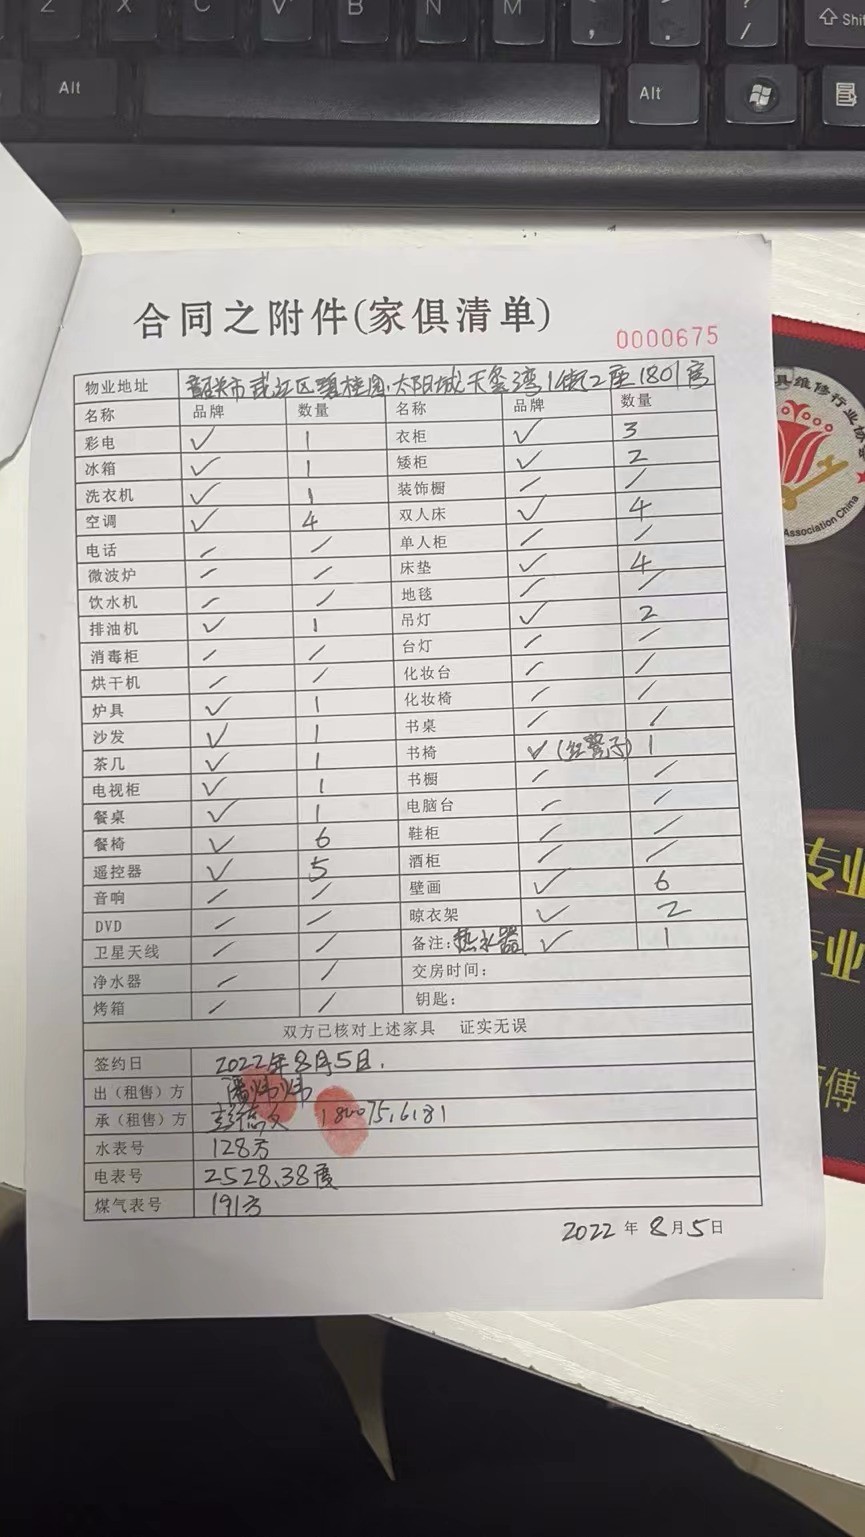 Z X C V B N M < , > . ? / Shift
Alt Alt
合同之附件(家俱清单)
0000675
物业地址 韶关市武江区碧桂园·太阳城天玺湾1街2座1801房
名称 品牌 数量 名称 品牌 数量
彩电 ✓ 1 衣柜 ✓ 3
冰箱 ✓ 1 矮柜 ✓ 2
洗衣机 ✓ 1 装饰橱 / /
空调 ✓ 4 双人床 ✓ 4
电话 / / 单人柜 / /
微波炉 / / 床垫 ✓ 4
饮水机 / / 地毯 / /
排油机 ✓ 1 吊灯 ✓ 2
消毒柜 / / 台灯 / /
烘干机 / / 化妆台 / /
炉具 ✓ 1 化妆椅 / /
沙发 ✓ 1 书桌 / /
茶几 ✓ 1 书椅 ✓ 1
电视柜 ✓ 1 书橱 / /
餐桌 ✓ 1 电脑台 / /
餐椅 ✓ 6 鞋柜 / /
遥控器 ✓ 5 酒柜 / /
音响 / / 壁画 ✓ 6
DVD / / 晾衣架 ✓ 2
卫星天线 / / 备注:热水器 ✓ 1
净水器 / / 交房时间:
烤箱 / / 钥匙:
双方已核对上述家具 证实无误
签约日 2022年8月5日.
出(租售)方
承(租售)方
水表号 128方
电表号 2528.38度
煤气表号 191方
2022年8月5日
具维修行业协
Association China
专业
专业
师傅